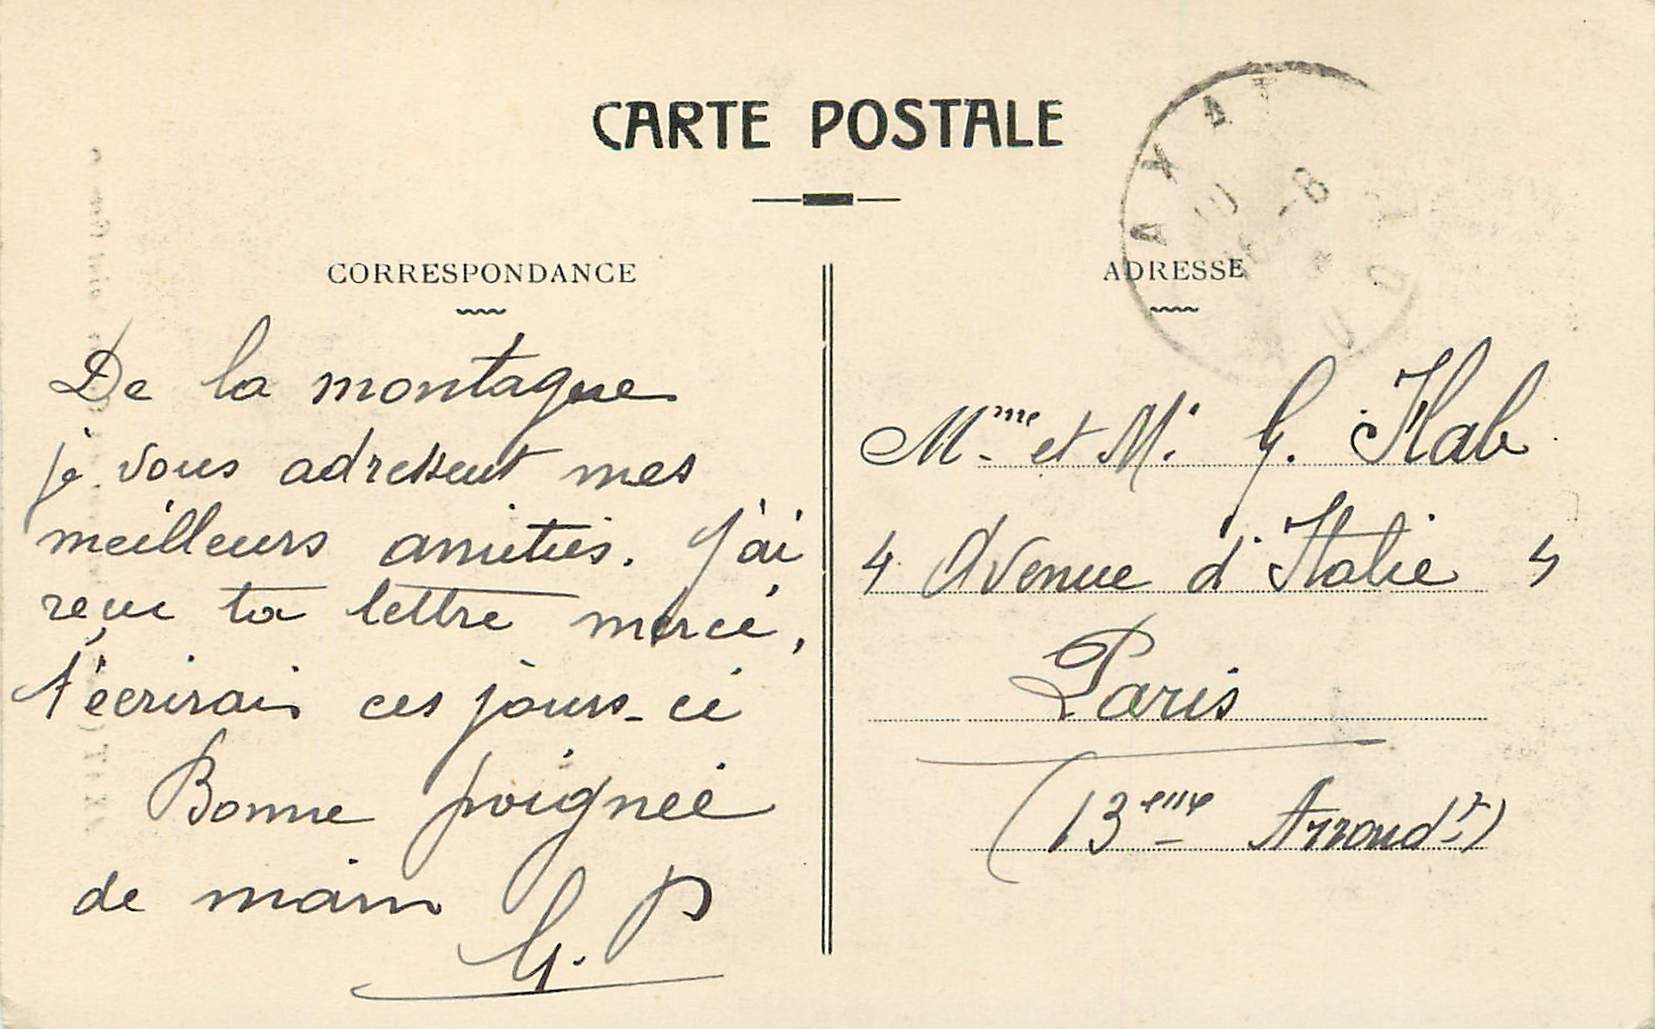 CARTE POSTALE
CORRESPONDANCE
De la montagne
je vous adressent mes
meilleurs amitiés. J'ai
reçu ta lettre merci,
t'écrirais ces jours-ci
Bonne poignée
de main
G. P
ADRESSE
AXAT
AUDE
Mme et M. G. Klab
4 Avenue d'Italie 4
Paris
(13eme Arrondt)